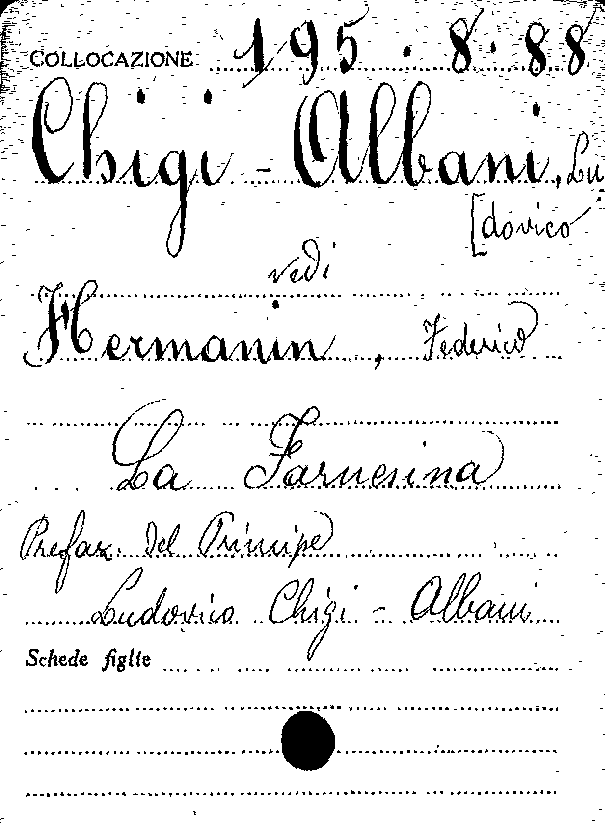 COLLOCAZIONE 195.8.88
Chigi-Albani, Lu
[dovico
vedi
Hermanin, Federico
La Farnesina
Prefaz. del Principe
Ludovico Chigi-Albani
Schede figlie